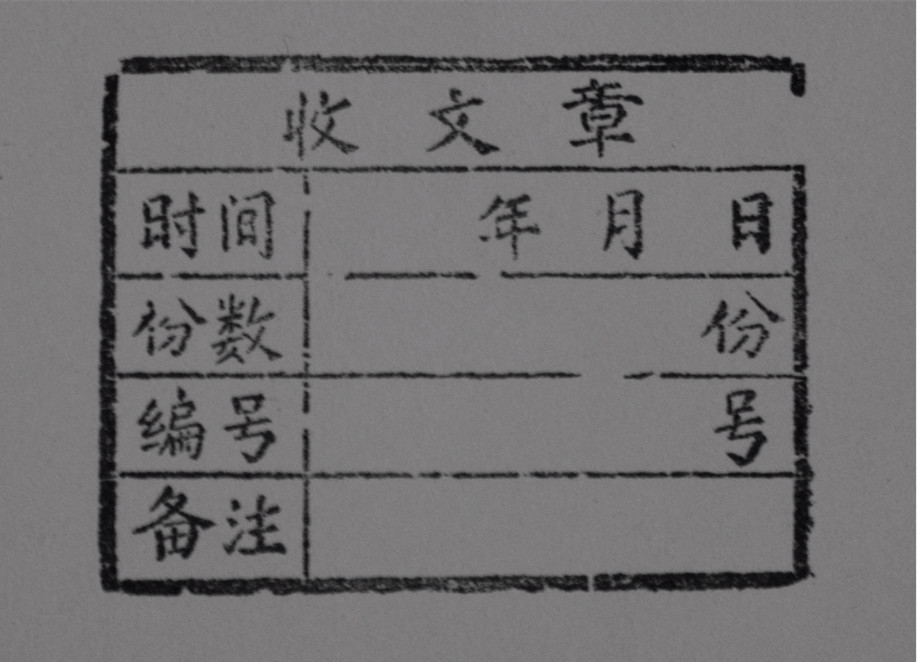 收文章
时间 年 月 日
份数 份
编号 号
备注